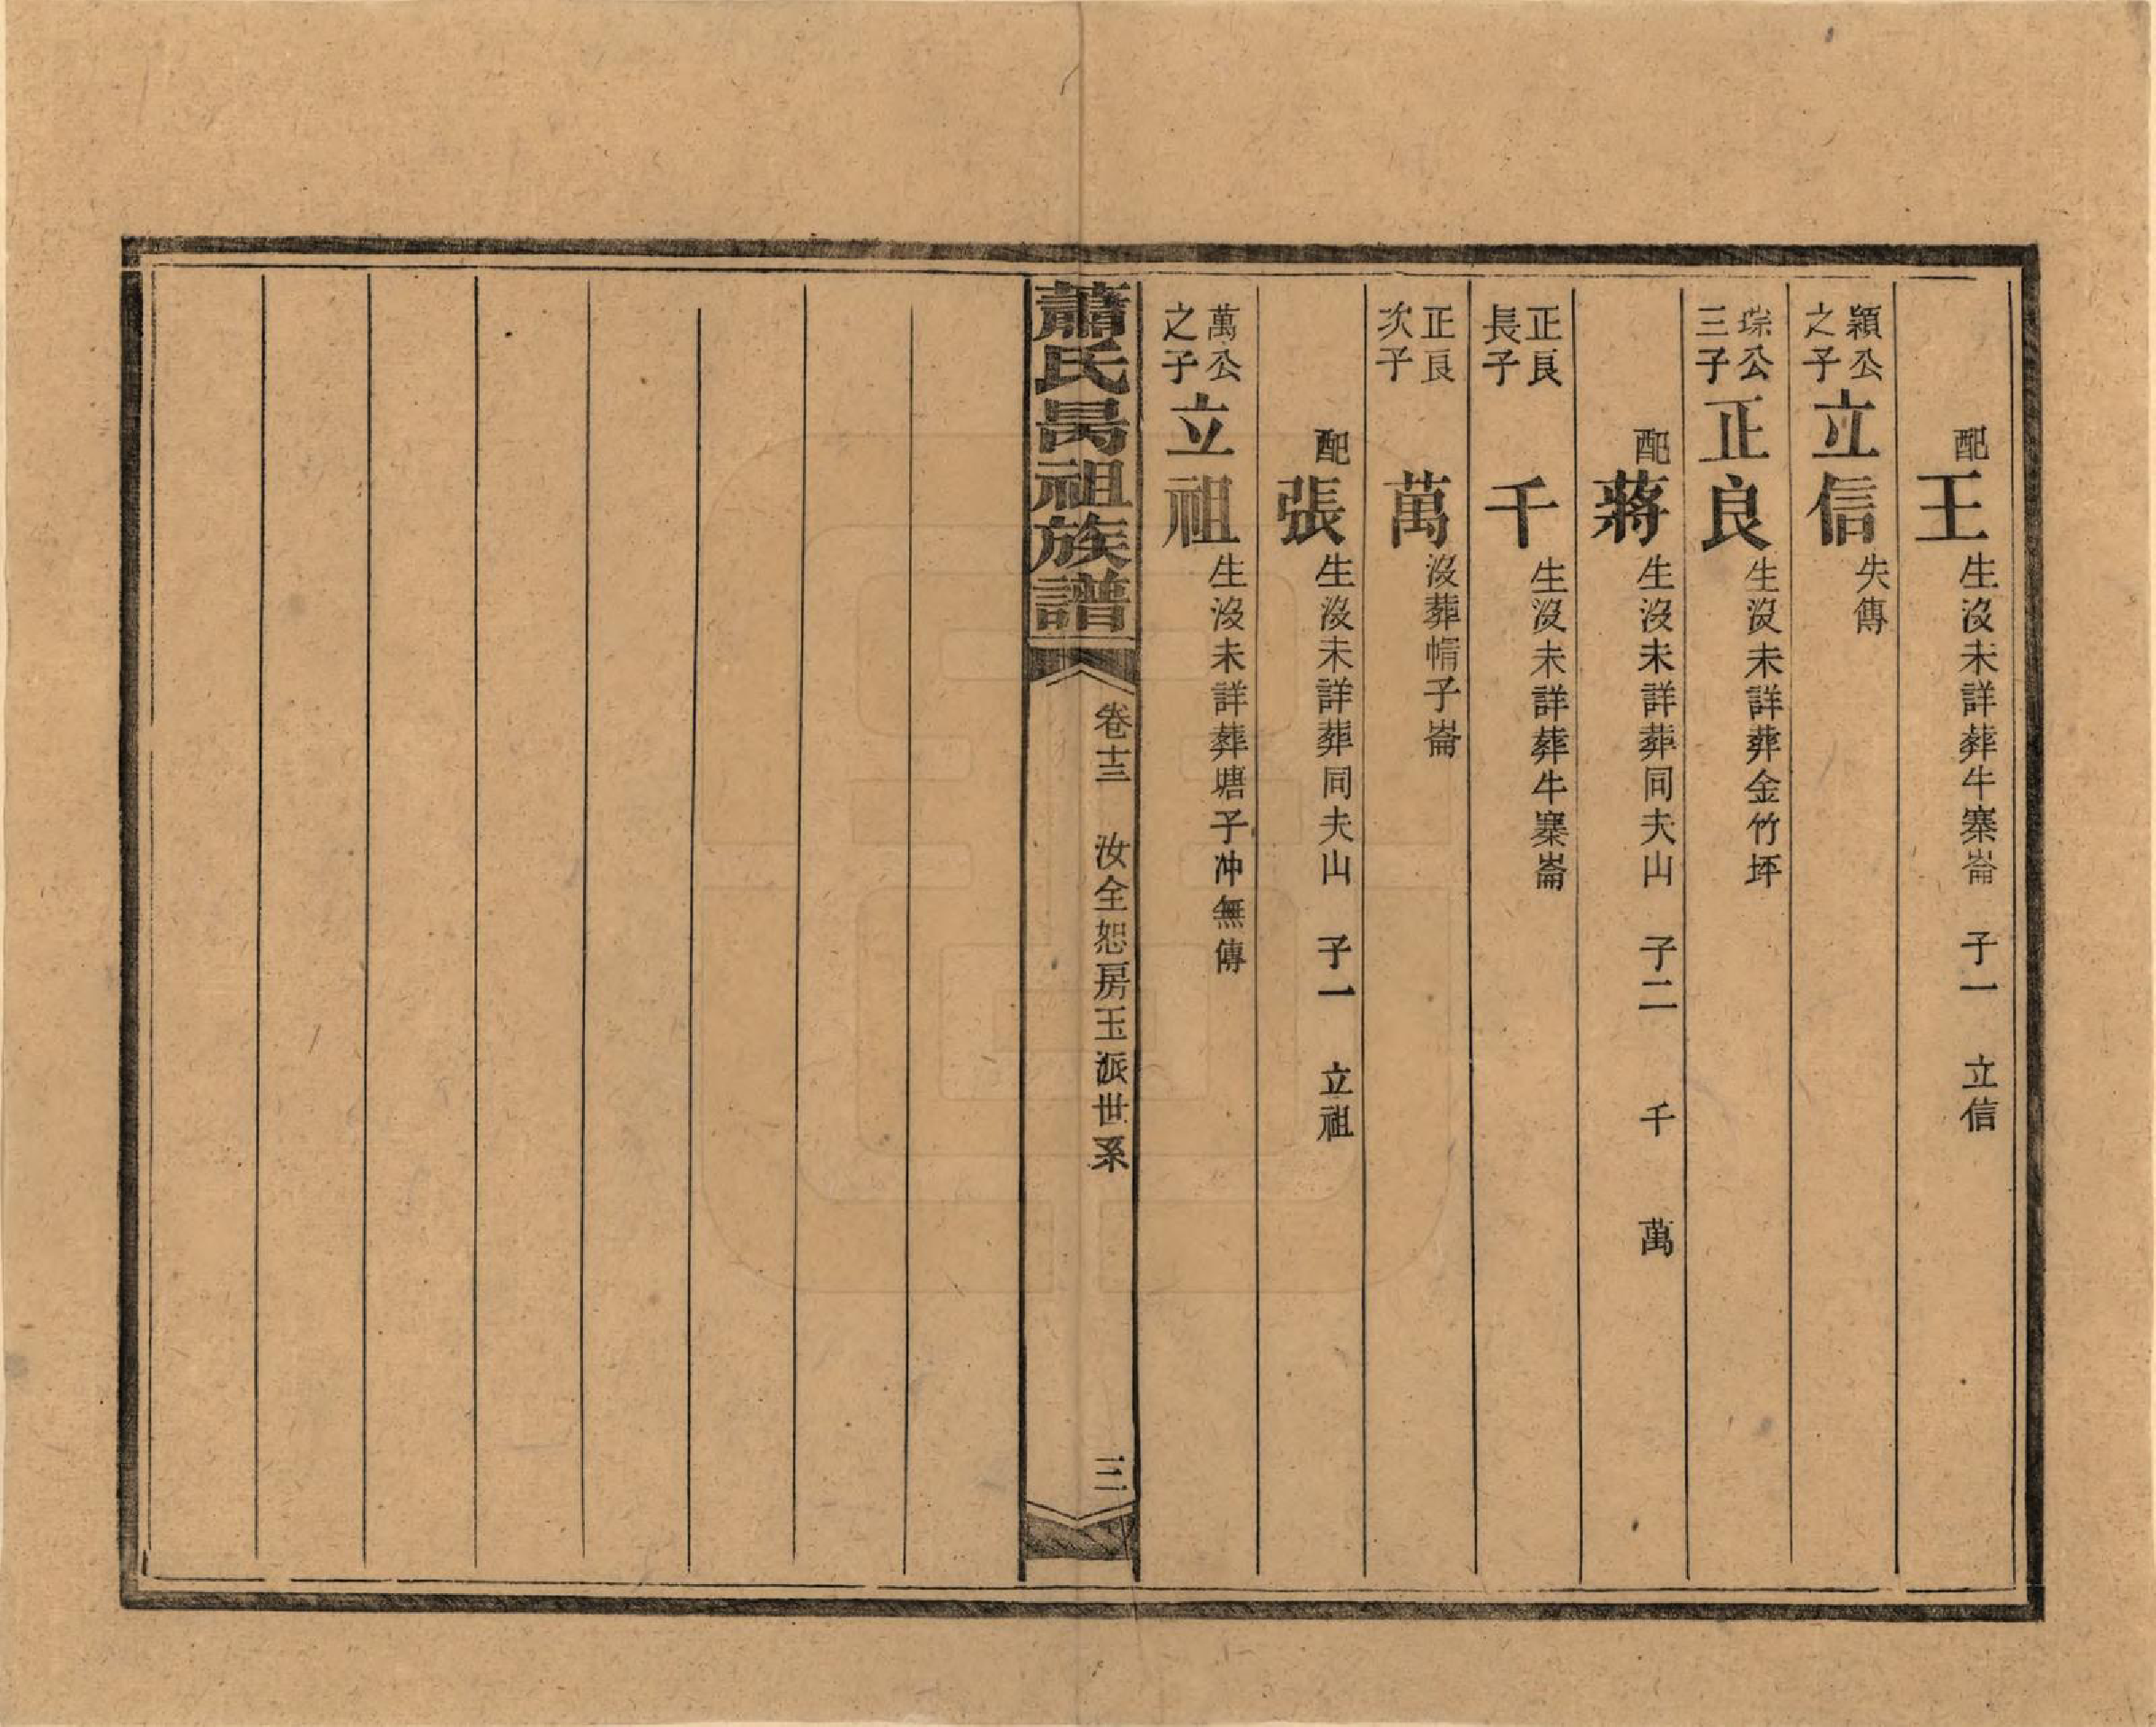 配王生沒未詳葬牛寨崙 子一 立信
穎公之子立信失傳
琮公三子正良生沒未詳葬金竹坪
配蔣生沒未詳葬同夫山 子二 千 萬
正良長子千生沒未詳葬牛寨崙
正良次子萬沒葬帽子崙
配張生沒未詳葬同夫山 子一 立祖
萬公之子立祖生沒未詳葬塘子冲無傳
蕭氏昺祖族譜 卷十三 汝全恕房玉派世系 三